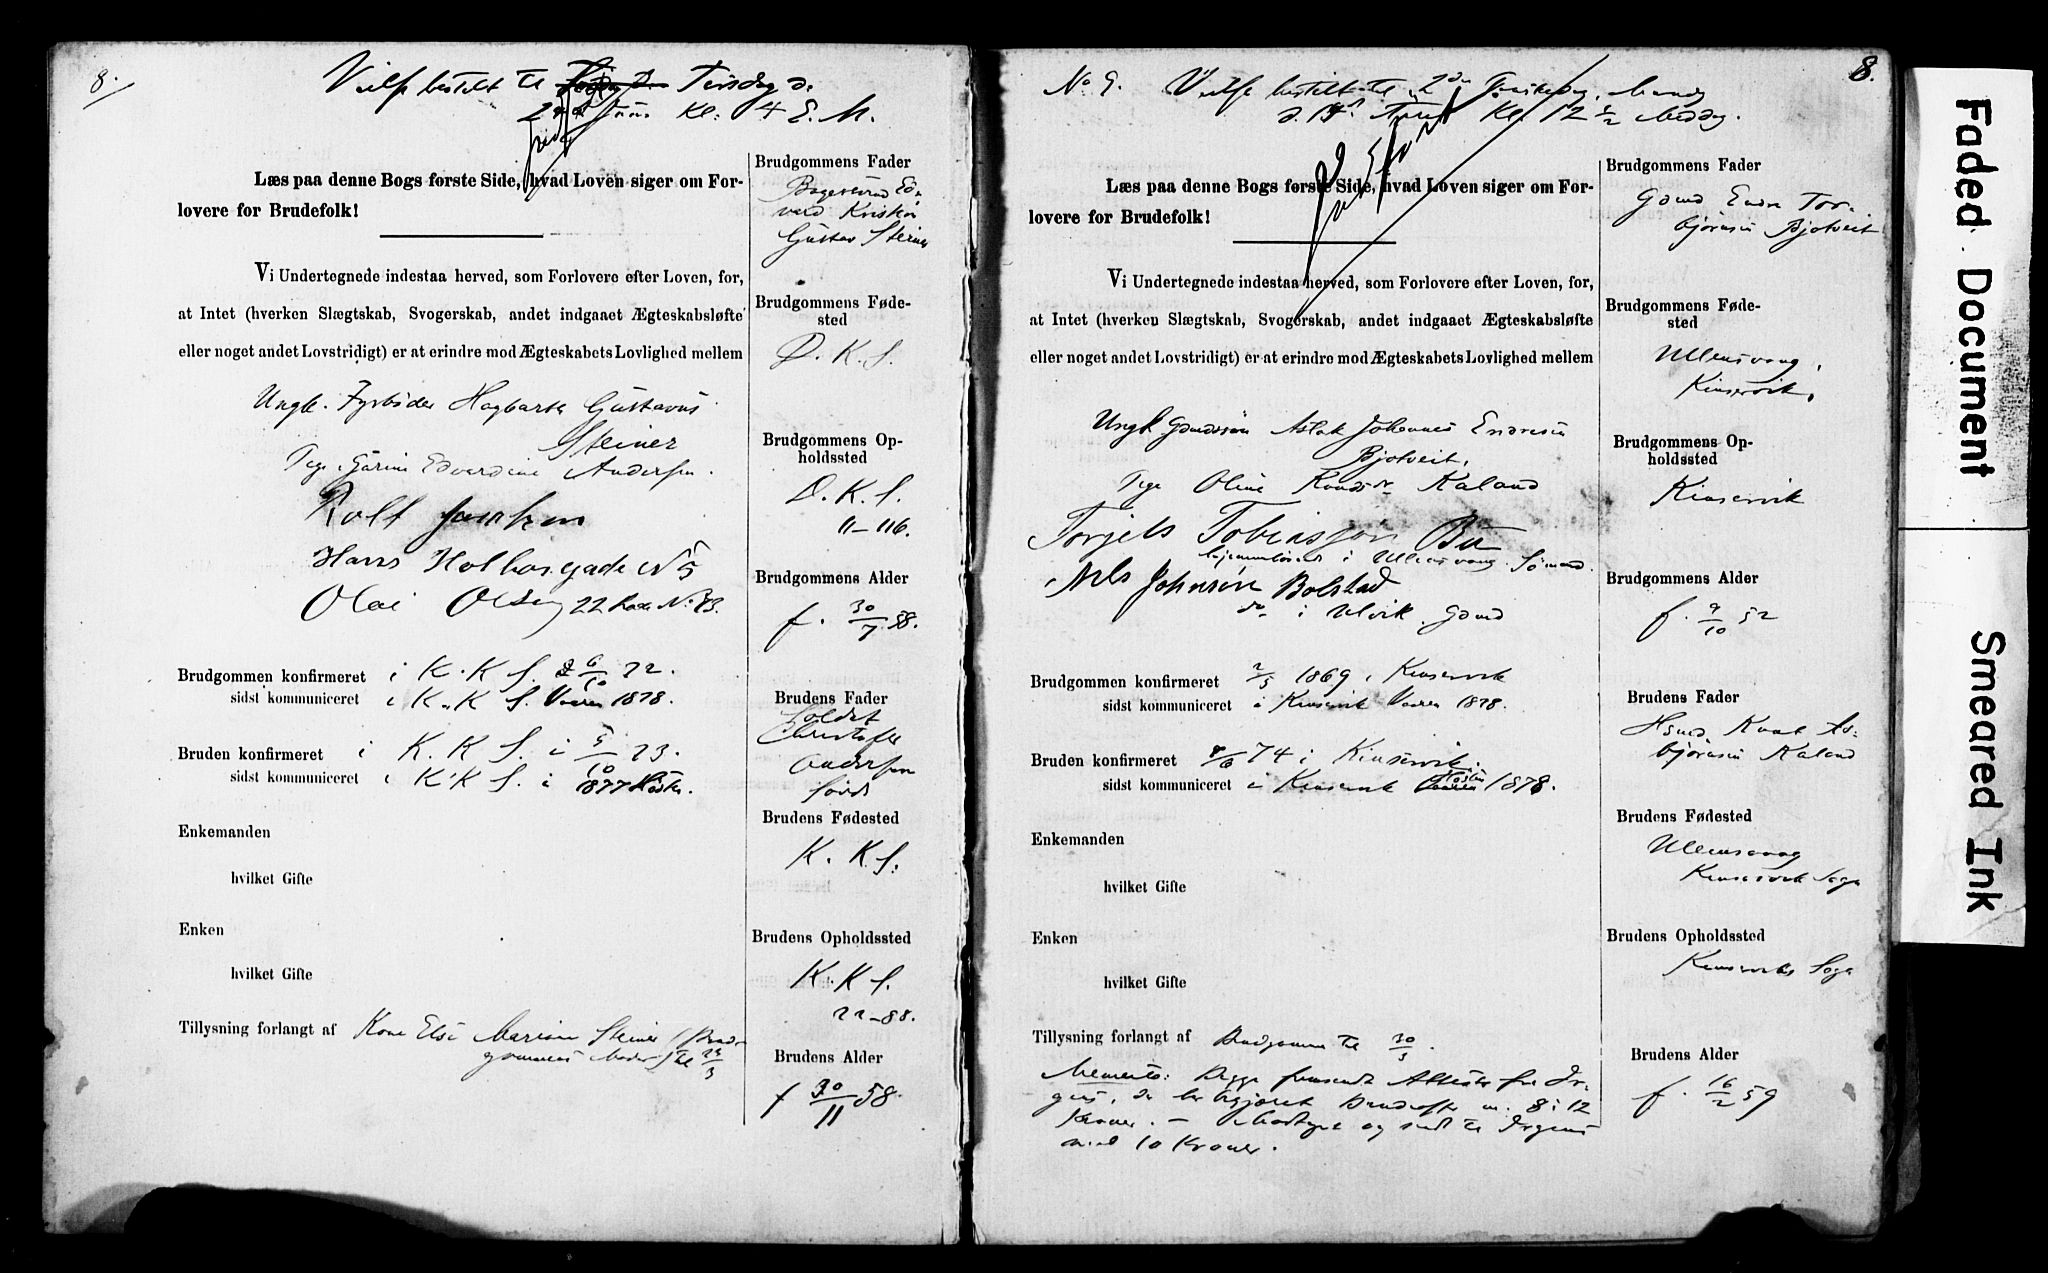 8.
Vielse bestilt til Tirsdag d.
2den Juni Kl: 4 E. M.
Læs paa denne Bogs første Side, hvad Loven siger om For-
lovere for Brudefolk!
Vi Undertegnede indestaa herved, som Forlovere efter Loven, for,
at Intet (hverken Slægtskab, Svogerskab, andet indgaaet Ægteskabsløfte
eller noget andet Lovstridigt) er at erindre mod Ægteskabets Lovlighed mellem
Ungk. Fyrbøder Hagbarth Gustavus
Steiner
Pige Edvardine Andersen.
Rolf
Hans Holbergs gade No 5
Olai Olsen 22 Rode No 73.
Brudgommen konfirmeret i K. K. S. 6/10 72.
sidst kommuniceret i K. K. S. Vaaren 1878.
Bruden konfirmeret i K. K. S. i 5/10 73.
sidst kommuniceret i K. K. S. i 1877 Høsten.
Enkemanden
hvilket Gifte
Enken
hvilket Gifte
Tillysning forlangt af Kone Else Marian Steiner (Brud-
gommens Moder) til 23/3
Brudgommens Fader
Edvard Kristian
Gustav Steiner
Brudgommens Føde-
sted
D. K. S.
Brudgommens Op-
holdssted
D. K. S.
11-116.
Brudgommens Alder
f. 30/7 58.
Brudens Fader
Soldat
Christofer
Andersen
Brudens Fødested
K. K. S.
Brudens Opholdssted
K. K. S.
22-88.
Brudens Alder
f 30/11 58.
8.
No 9. Vielse bestilt til 2den Juledag, Mandag
d. Kl. 12 1/2 Middag.
Læs paa denne Bogs første Side, hvad Loven siger om For-
lovere for Brudefolk!
Vi Undertegnede indestaa herved, som Forlovere efter Loven, for,
at Intet (hverken Slægtskab, Svogerskab, andet indgaaet Ægteskabsløfte
eller noget andet Lovstridigt) er at erindre mod Ægteskabets Lovlighed mellem
Ungk. Gmdssøn Aslak Johannes Endresen
Bjotveit.
Pige Oline Knudsdr Kaland
Torjels Tobiasson Bu
hjemmehørende i Ullensvang. Sømand.
Nels Johnsøn Bolstad
do i Ulvik. Gmd
Brudgommen konfirmeret 2/5 1869 i Kinservik
sidst kommuniceret i Kinservik Vaaren 1878.
Bruden konfirmeret 74 i Kinservik.
sidst kommuniceret i Kinservik Høsten 1878.
Enkemanden
hvilket Gifte
Enken
hvilket Gifte
Tillysning forlangt af Brudgommen til 30/3.
Memento: Begge Attester fra
12
Kroner. - og sendt til
med 10 Kroner.
Brudgommens Fader
Gmd Endre Tor-
bjørnsen Bjotveit
Brudgommens Føde-
sted
Ullensvang,
Kinservik.
Brudgommens Op-
holdssted
Kinservik
Brudgommens Alder
f. 9/10 52
Brudens Fader
Hsmd Knut As-
bjørnsen Kaland
Brudens Fødested
Ullensvang
Kinservik Sogn
Brudens Opholdssted
Kinserviks Sogn
Brudens Alder
f. 16/2 59
Faded Document
Smeared Ink